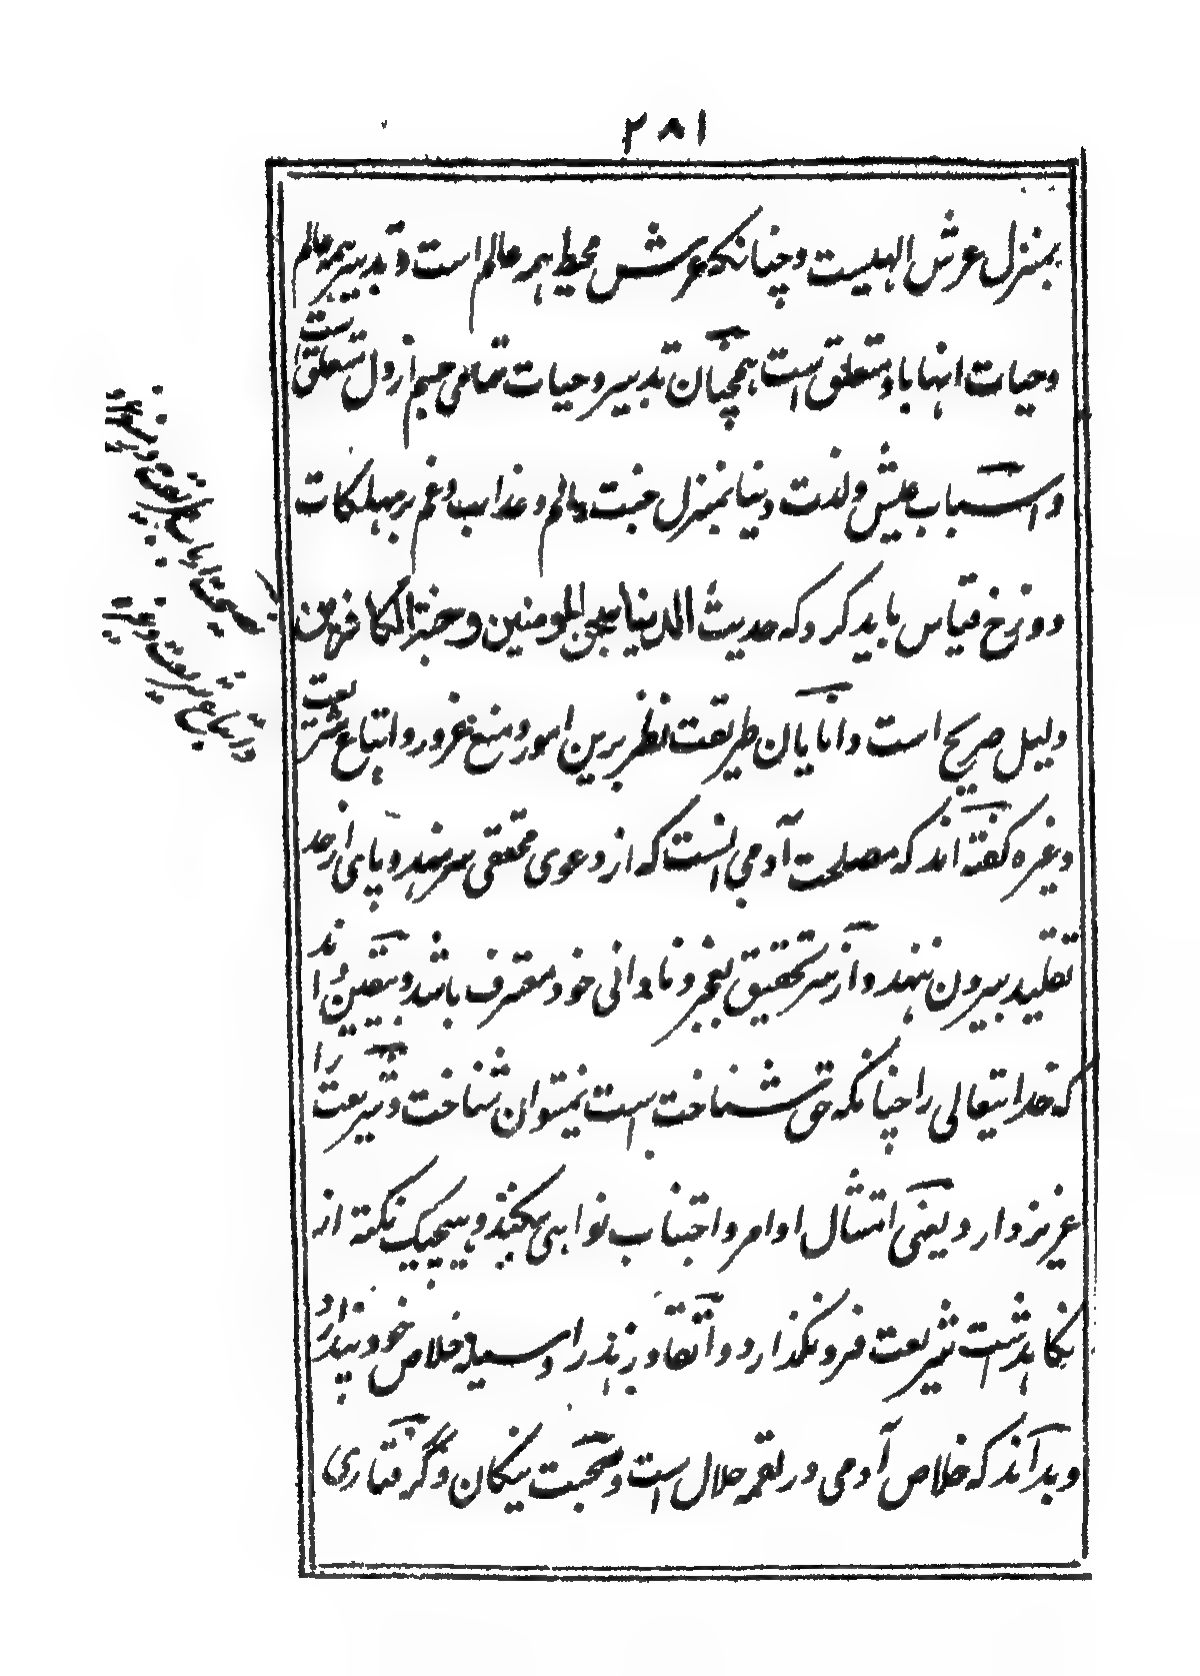 ۲۸۱
بمنزل عرش الهیست و چنانکه عرش محیط همه عالم است و تدبیر همه عالم
و حیات انها باو متعلق است همچنان تدبیر و حیات تمامی جسم از دل متعلق است
و اسباب عیش و لذت دنیا بمنزل جنت و الم و عذاب و غم بر مهلکات
دوزخ قیاس باید کرد و که حدیث الدنیا سجن المومنین و جنة الکافرین
دلیل صریح است و انایان طریقت نظر برین امور و منع غرور و اتباع شریعت
و غیره گفته اند که مصلحت آدمی انست که از دعوی محققی سر نهد و پای از حد
تقلید بیرون ننهد و از سر تحقیق بعجز و نادانی خود معترف باشد و بیقین داند
که خدایتعالی را چنانکه حق شناخت است نمیتوان شناخت و شریعت را
عزیز دارد یعنی امتثال اوامر و اجتناب نواهی میکند و هیچیک نکته از
نکاهداشت شریعت فرو نگذارد و اتقا و زهد را وسیله خلاص خود پندارد
و بداند که خلاص آدمی در لقمه حلال است و صحبت نیکان و گرفتاری